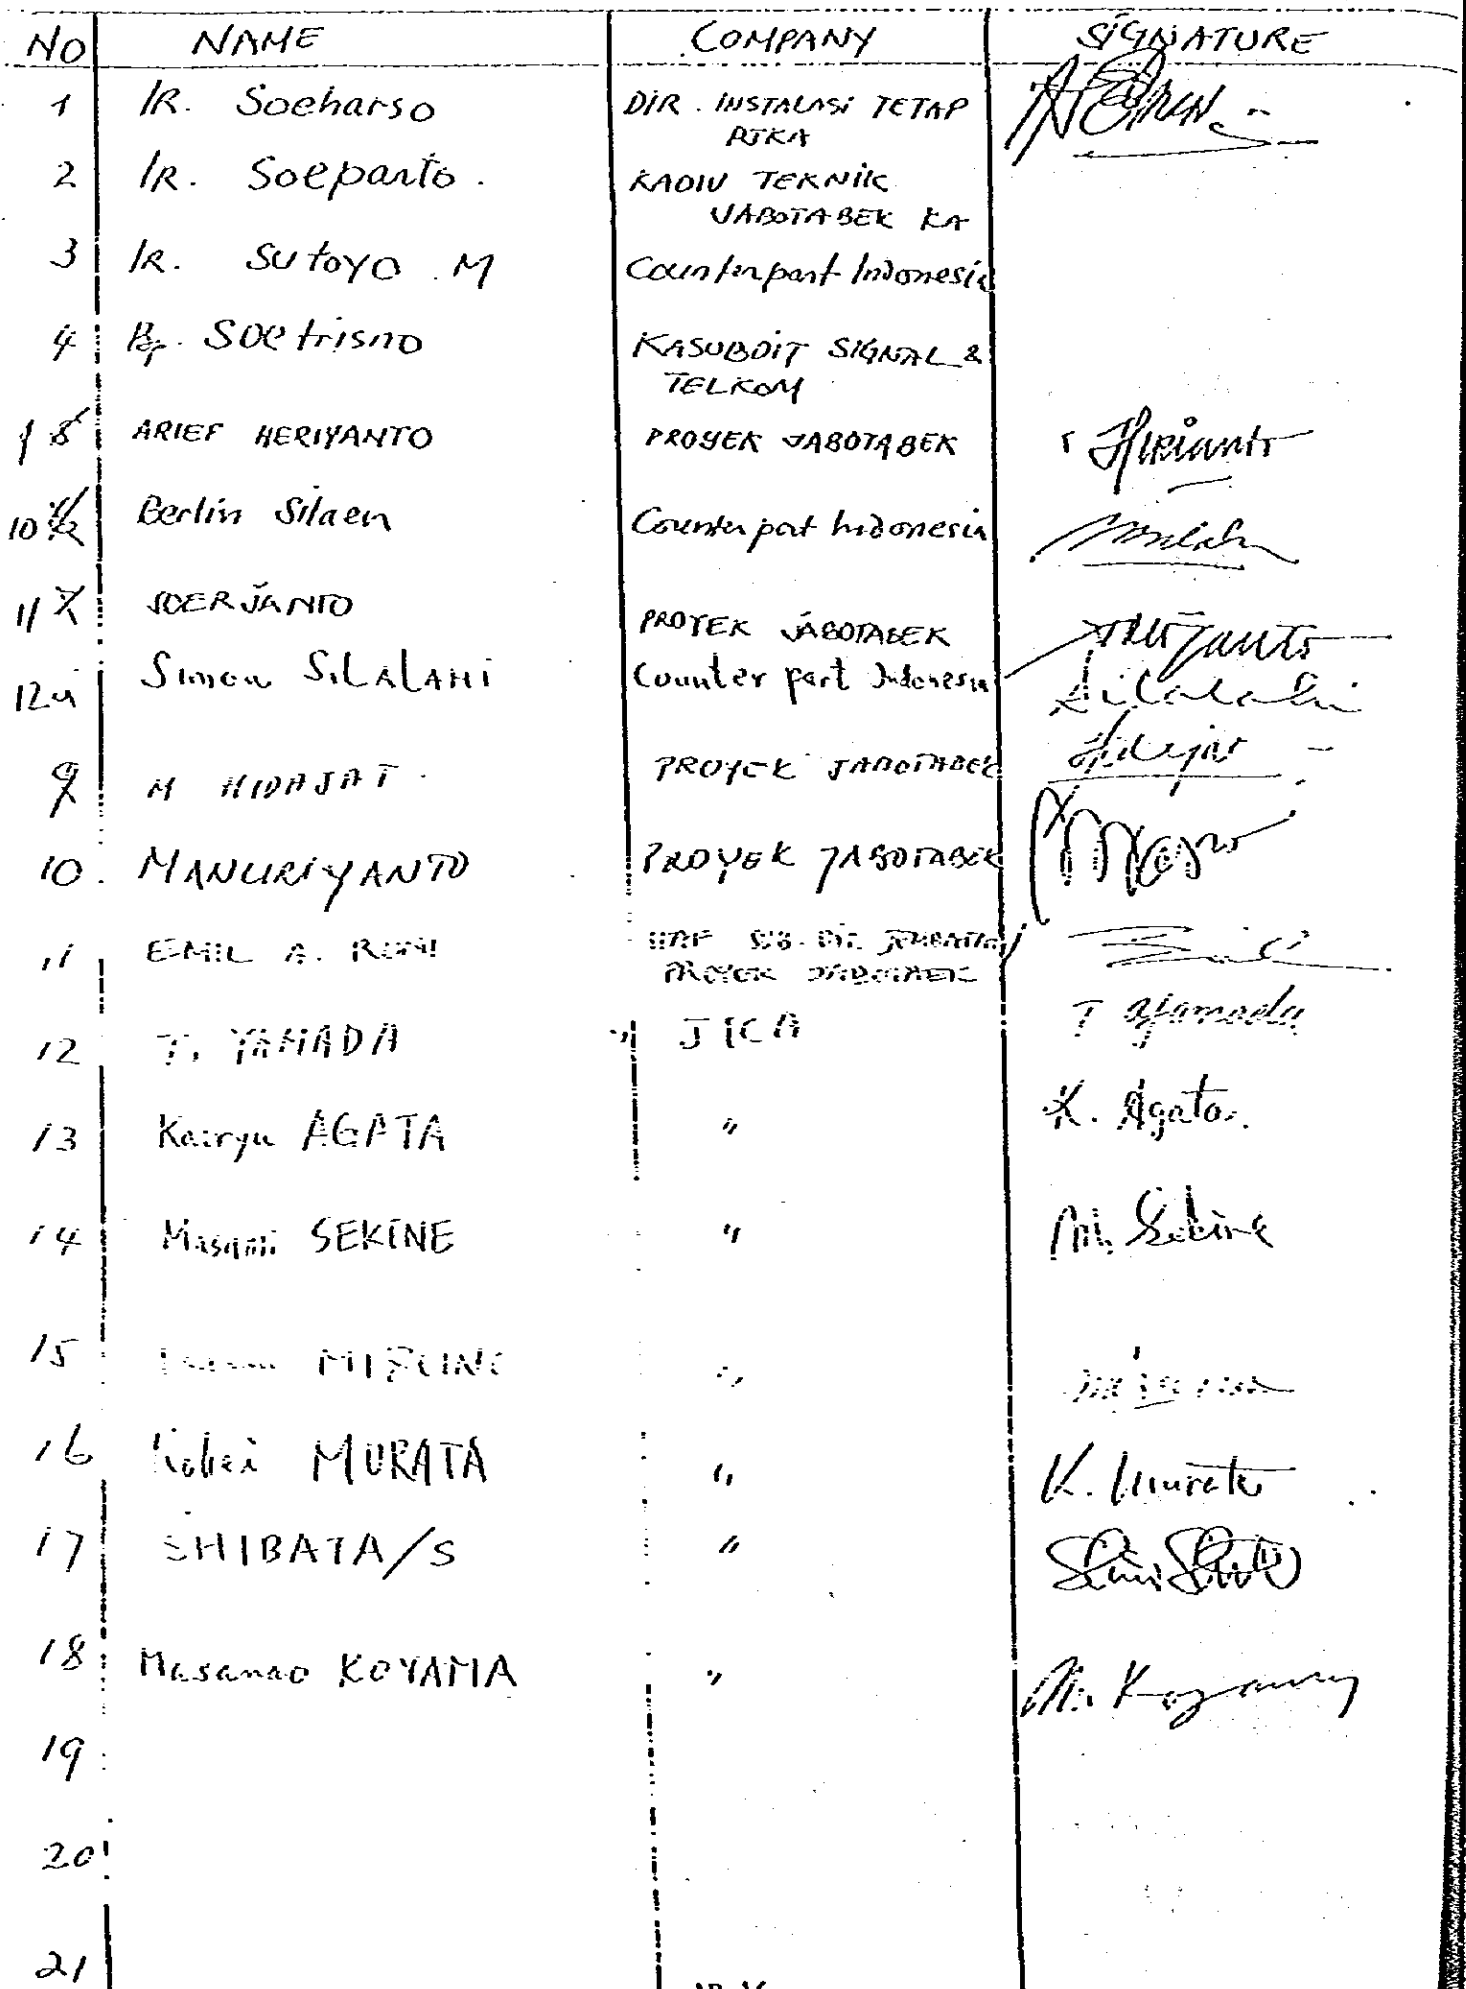 NO NAME COMPANY SIGNATURE
1 IR. Soeharso DIR. INSTALASI TETAP
PJKA
2 IR. Soeparto. KADIV TEKNIK
JABOTABEK KA
3 IR. SUTOYO.M Counterpart Indonesia
4 Bp. SOEtrisno KASUBDIT SIGNAL &
TELKOM
ARIEF HERIYANTO PROYEK JABOTABEK Herianto
10 Berlin Silaen Counterpart Indonesia
11 SOERJANTO PROYEK JABOTABEK Soerjanto
12 Simon SILALAHI Counter part Indonesia Silalahi
9 M HIDAJAT PROYEK JABOTABEK Hidajat
10. MANURIYANTO PROYEK JABOTABEK
11 EMIL A. SUB. DIT. JEMBATAN
PROYEK JABOTABEK
12 T. YAMADA JICA T Yamada
13 Kairyu AGATA " K. Agata
14 Masami SEKINE " M. Sekine
15 "
16 Kohei MURATA " K. Murata
17 SHIBATA/S "
18 Masanao KOYAMA " M. Koyama
19
20
21